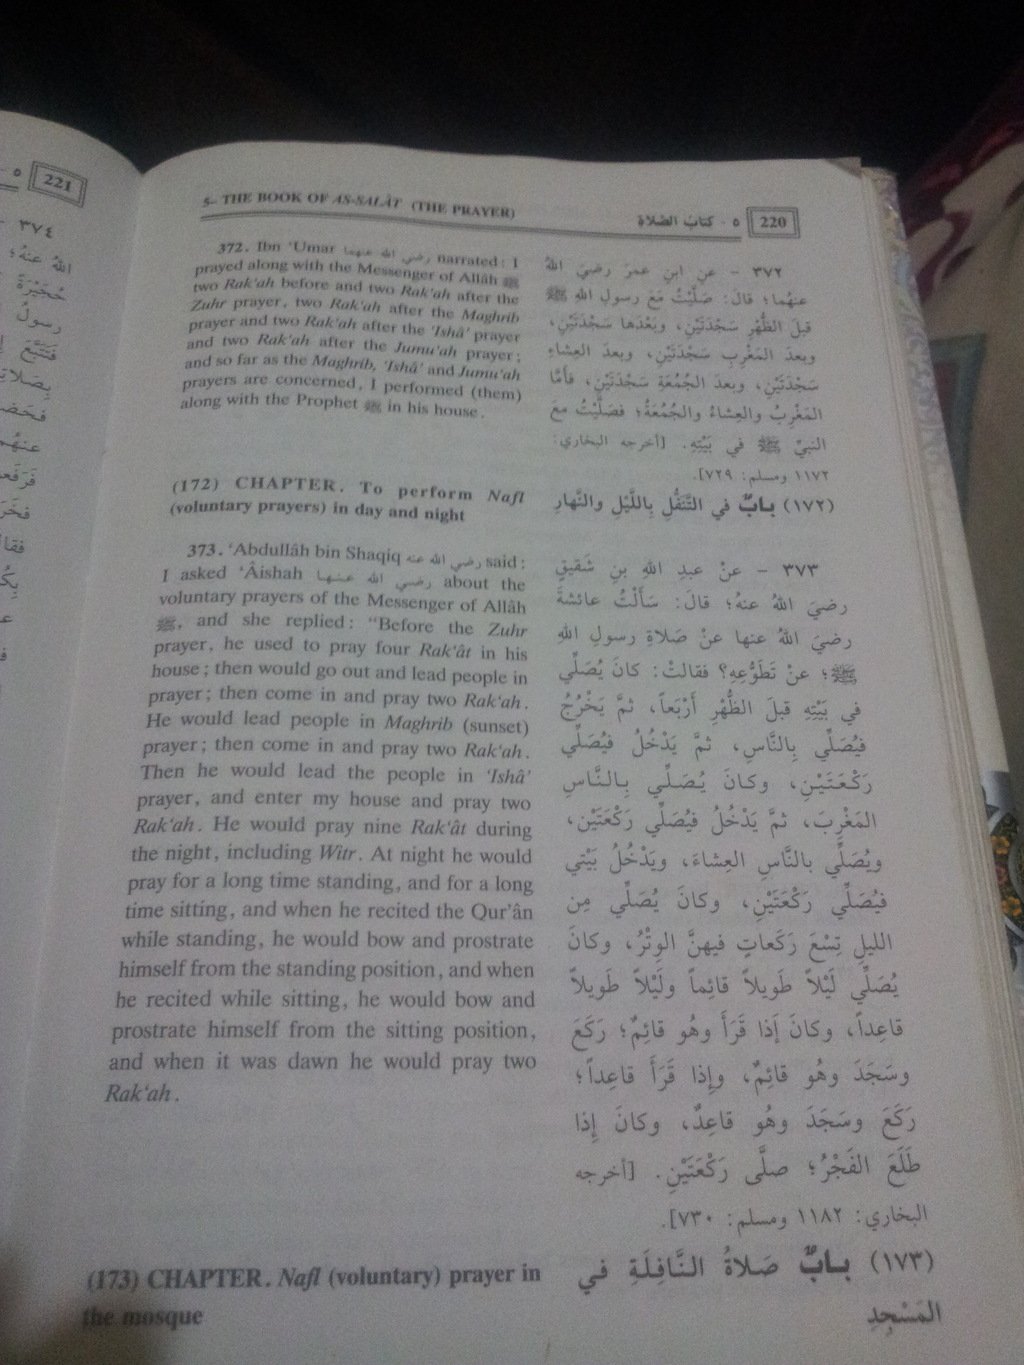 5- THE BOOK OF AS-SALÂT (THE PRAYER)
٥ - كتابُ الصَّلاةِ
220
372. Ibn ‘Umar رضي الله عنهما narrated: I
prayed along with the Messenger of Allâh ﷺ
two Rak‘ah before and two Rak‘ah after the
Zuhr prayer, two Rak‘ah after the Maghrib
prayer and two Rak‘ah after the ‘Ishâ’ prayer
and two Rak‘ah after the Jumu‘ah prayer;
and so far as the Maghrib, ‘Ishâ’ and Jumu‘ah
prayers are concerned, I performed (them)
along with the Prophet ﷺ in his house.
٣٧٢ - عنِ ابنِ عمرَ رضيَ اللهُ
عنهُما؛ قالَ: صَلَّيْتُ مَعَ رسولِ اللهِ ﷺ
قبلَ الظُّهْرِ سَجْدَتَيْنِ، وبَعْدَها سَجْدَتَيْنِ،
وبعدَ المَغْرِبِ سَجْدَتَيْنِ، وبعدَ العِشاءِ
سَجْدَتَيْنِ، وبعدَ الجُمُعَةِ سَجْدَتَيْنِ، فأَمَّا
المَغْرِبُ والعِشاءُ والجُمُعَةُ؛ فصَلَّيْتُ معَ
النبيِّ ﷺ في بَيْتِهِ. [أخرجه البخاري:
١١٧٢ ومسلم: ٧٢٩].
(172) CHAPTER. To perform Nafl
(voluntary prayers) in day and night
(١٧٢) بابٌ في التَّنَفُّلِ بِاللَّيْلِ والنَّهارِ
373. ‘Abdullâh bin Shaqiq رضي الله عنه said:
I asked ‘Âishah رضي الله عنها about the
voluntary prayers of the Messenger of Allâh
ﷺ, and she replied: “Before the Zuhr
prayer, he used to pray four Rak‘ât in his
house; then would go out and lead people in
prayer; then come in and pray two Rak‘ah.
He would lead people in Maghrib (sunset)
prayer; then come in and pray two Rak‘ah.
Then he would lead the people in ‘Ishâ’
prayer, and enter my house and pray two
Rak‘ah. He would pray nine Rak‘ât during
the night, including Witr. At night he would
pray for a long time standing, and for a long
time sitting, and when he recited the Qur’ân
while standing, he would bow and prostrate
himself from the standing position, and when
he recited while sitting, he would bow and
prostrate himself from the sitting position,
and when it was dawn he would pray two
Rak‘ah.
٣٧٣ - عنْ عبدِ اللهِ بنِ شَقيقٍ
رضيَ اللهُ عنهُ؛ قالَ: سَأَلْتُ عائشةَ
رضيَ اللهُ عنها عنْ صَلاةِ رسولِ اللهِ
ﷺ؛ عنْ تَطَوُّعِهِ؟ فقالتْ: كانَ يُصَلِّي
في بَيْتِهِ قبلَ الظُّهْرِ أَرْبَعاً، ثمَّ يَخْرُجُ
فيُصَلِّي بِالنَّاسِ، ثمَّ يَدْخُلُ فيُصَلِّي
رَكْعَتَيْنِ، وكانَ يُصَلِّي بِالنَّاسِ
المَغْرِبَ، ثمَّ يَدْخُلُ فيُصَلِّي رَكْعَتَيْنِ،
ويُصَلِّي بالنَّاسِ العِشاءَ، ويَدْخُلُ بَيْتي
فيُصَلِّي رَكْعَتَيْنِ، وكانَ يُصَلِّي مِن
الليلِ تِسْعَ رَكَعاتٍ فيهنَّ الوِتْرُ، وكانَ
يُصَلِّي لَيْلاً طَويلاً قائِماً ولَيْلاً طَويلاً
قاعِداً، وكانَ إَذا قَرَأَ وهُو قائِمٌ؛ رَكَعَ
وسَجَدَ وهُو قائِمٌ، وإِذا قَرَأَ قاعِداً؛
رَكَعَ وسَجَدَ وهُو قاعِدٌ، وكانَ إِذا
طَلَعَ الفَجْرُ؛ صلَّى رَكْعَتَيْنِ. [أخرجه
البخاري: ١١٨٢ ومسلم: ٧٣٠].
(173) CHAPTER. Nafl (voluntary) prayer in
the mosque
(١٧٣) بابٌ صَلاةُ النَّافِلَةِ في
المَسْجِدِ
221
٥
٣٧٤
اللهُ عنهُ؛
حُجَيْرَةً
رسولُ
فَتَتَبَّعَ
فحَضَ
عنهُم
فقا